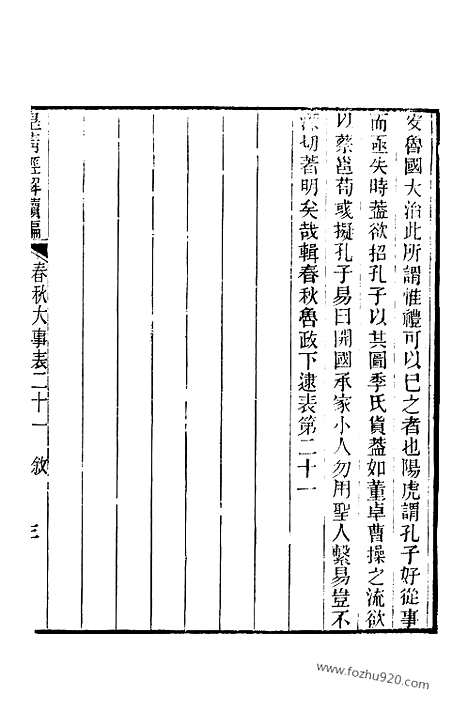 安魯國大治此所謂惟禮可以已之者也陽虎謂孔子好從事
而亟失時蓋欲招孔子以共圖季氏貨蓋如董卓曹操之流欲
以蔡邕荀彧擬孔子易曰開國承家小人勿用聖人繫易豈不
深切著明矣哉輯春秋魯政下逮表第二十一
皇清經解續編
春秋大事表二十一 敘
三
www.fozhu920.com